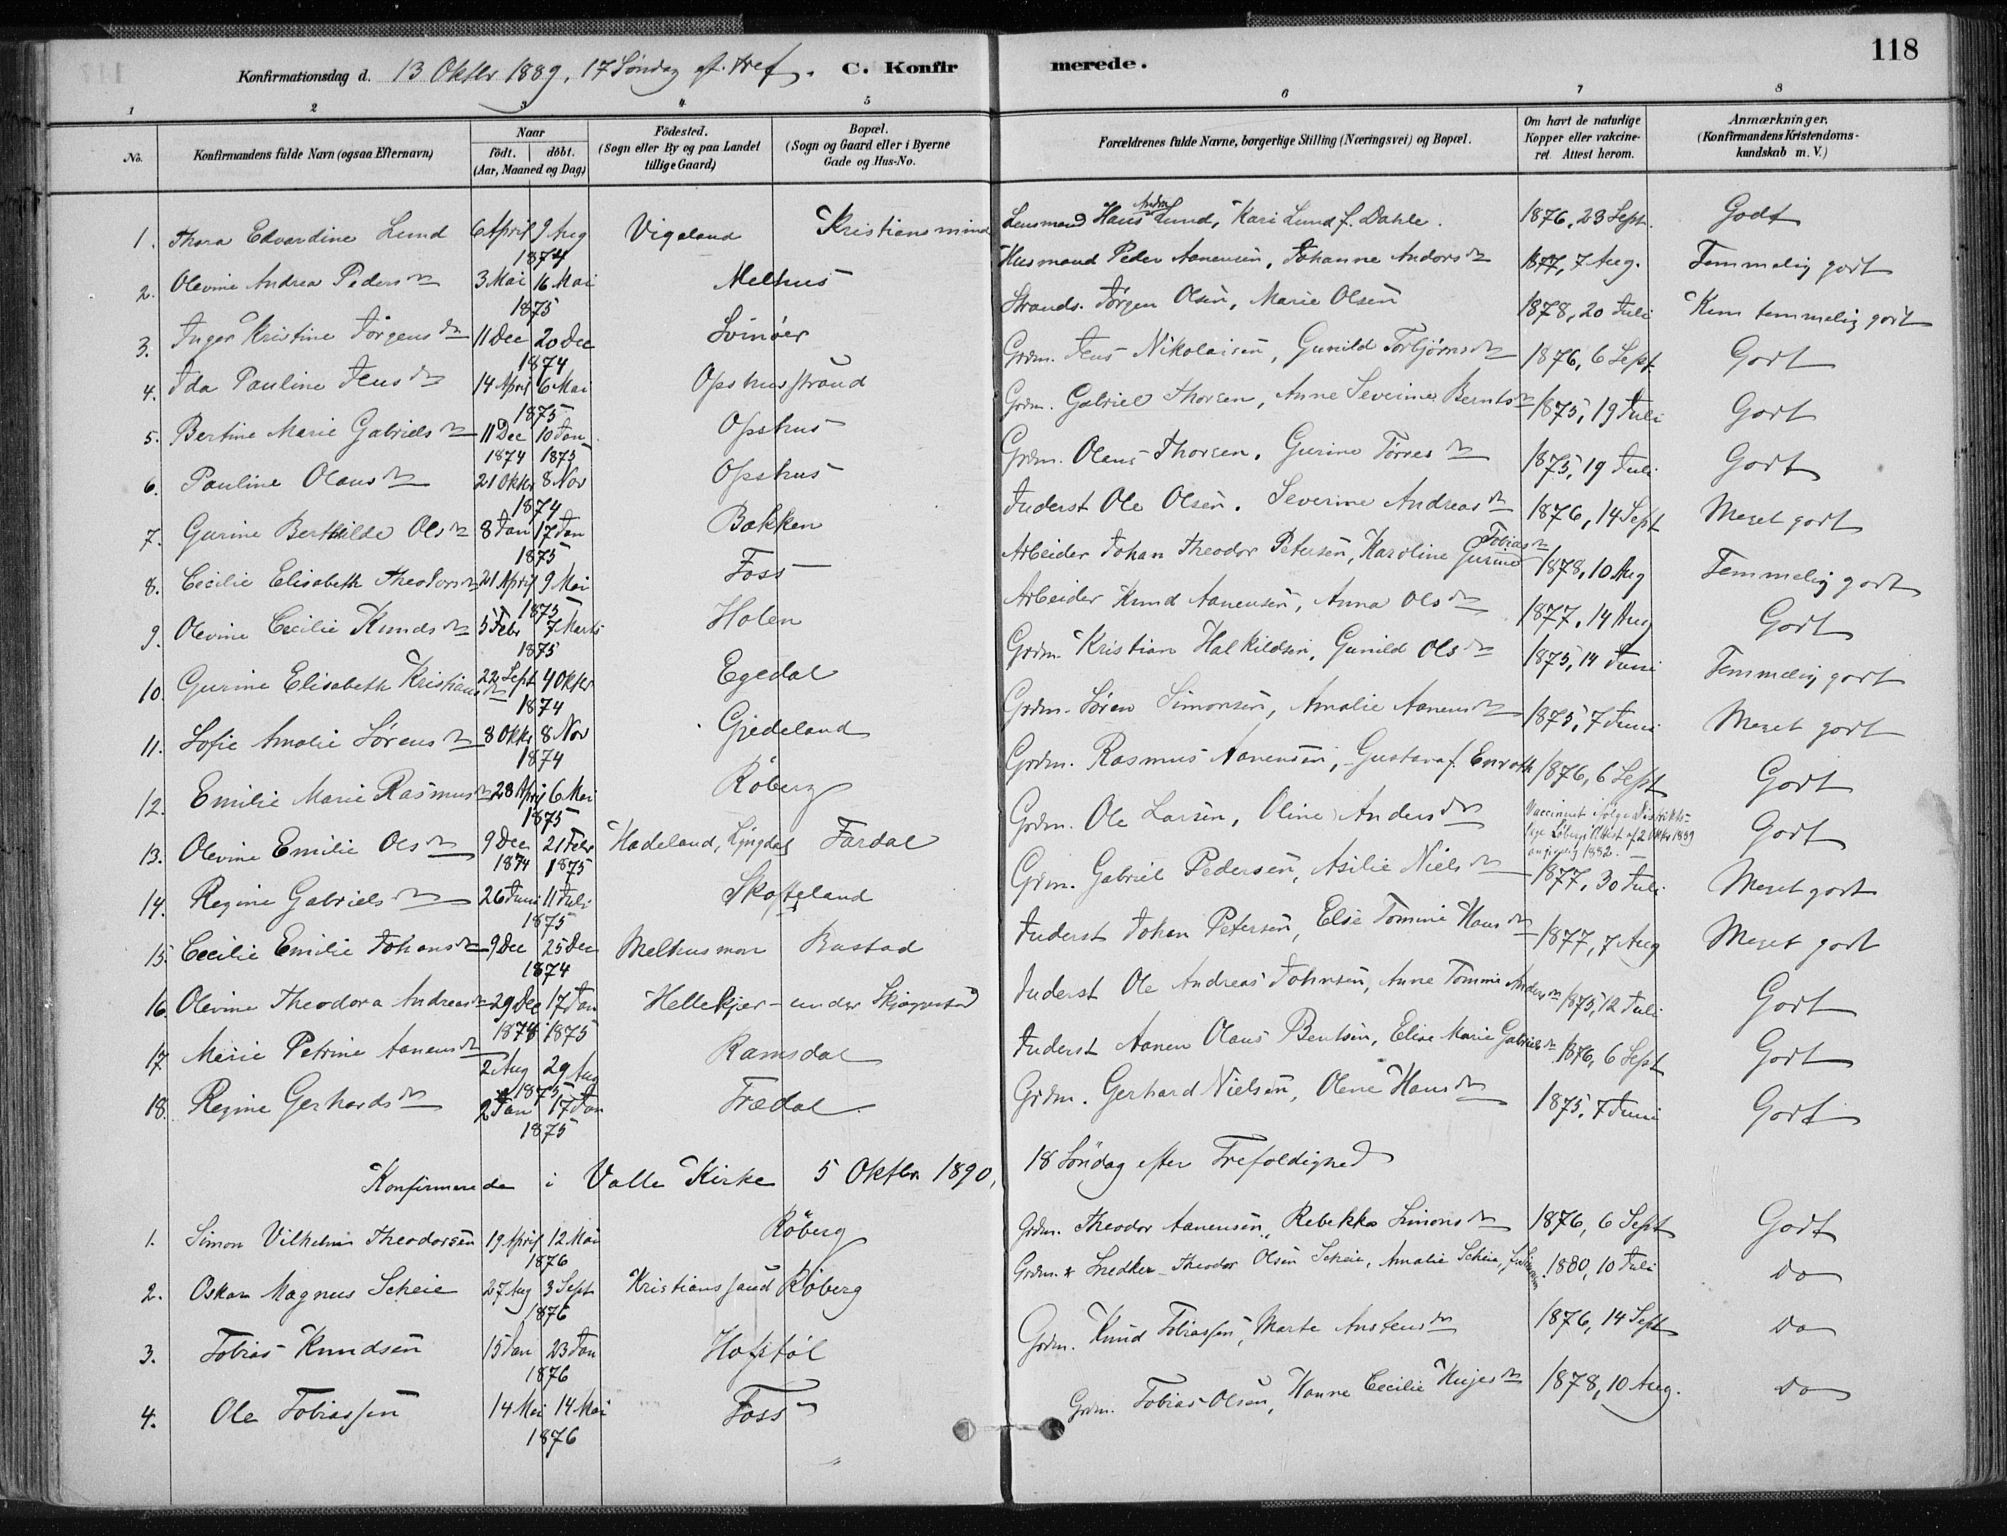 118
Konfirmationsdag d. 13 Oktbr 1889, 17 Søndag ef. Tref. C. Konfirmerede.
1 2 3 4 5 6 7 8
No. Konfirmandens fulde Navn (ogsaa Efternavn) Naar födt. döbt. (Aar, Maaned og Dag) Födested. (Sogn eller By og paa Landet tillige Gaard) Bopæl. (Sogn og Gaard eller i Byerne Gade og Hus-No. Forældrenes fulde Navne, borgerlige Stilling (Næringsvei) og Bopæl. Om havt de naturlige Kopper eller vakcineret. Attest herom. Anmærkninger. (Konfirmandens Kristendomskundskab m. V.)
1. Thora Edvardine Lund 6 April 9 Aug 1874 Vigeland Kristiansmind Lensmand Hans Andr. Lund, Kari Lund f. Dahle. 1876, 23 Sept. Godt
2. Olevine Andrea Pedersdtr 3 Mai 16 Mai 1875 Melhus Husmand Peder Aanensen, Johanne Andorsdtr 1877, 7 Aug. Temmelig godt
3. Inger Kristine Jörgensdtr 11 Dec 20 Dec 1874 Svinöer Strands. Jörgen Olsen, Marie Olsen 1878, 20 Juli Kun temmelig godt
4. Ida Pauline Jensdtr 14 April 6 Mai 1875 Opshusstrand Grdm. Jens Nikolaisen, Gunild Torbjørnsdtr 1876, 6 Sept Godt
5. Bertine Marie Gabrielsdtr 11 Dec 1874 10 Jan 1875 Opshus Grdm. Gabriel Thorsen, Anne Severine Berntsdtr 1875, 19 Juli Godt
6. Pauline Olausdtr 21 Oktbr 8 Nov 1874 Opshus Grdm. Olaus Thorsen, Gurine Törresdtr 1875, 19 Juli Godt
7. Gurine Berthilde Olsdtr 8 Jan 17 Jan 1875 Bakken Inderst Ole Olsen, Severine Andreasdtr 1876, 14 Sept Meget godt
8. Cecilie Elisabeth Theodorsdtr 21 April 9 Mai 1875 Foss Arbeider Johan Theodor Petersen, Karoline Gurine Tobiasdtr 1878, 10 Aug Temmelig godt
9. Olevine Cecilie Knudsdtr 5 Febr 7 Marts 1875 Holen Arbeider Knud Aanensen, Anna Olsdtr 1877, 14 Aug Godt
10. Gurine Elisabeth Kristiansdtr 22 Sept 4 Oktbr 1874 Egedal Grdm. Kristian Halkildsen, Gunild Olsdtr 1875, 14 Juni Temmelig godt
11. Sofie Amalie Sörensdtr 8 Oktbr 8 Nov 1874 Gjedeland Grdm. Sören Simonsen, Amalie Aanensdtr 1875, 7 Juni Meget godt
12. Emilie Marie Rasmusdtr 28 April 6 Mai 1875 Röberg Grdm. Rasmus Aanensen, Gustava f. Enroth 1876, 6 Sept Godt
13. Olevine Emilie Olsdtr 9 Dec 1874 21 Febr 1875 Hadeland, Lyngdal Fardal Grdm. Ole Larsen, Oline Andersdtr Vaccineret ifølge Distriktslæge Attest af 2 Oktbr 1889 1882. Godt
14. Regine Gabrielsdtr 26 Juni 11 Juli 1875 Skofteland Grdm. Gabriel Pedersen, Asilie Nielsdtr 1877, 30 Juli Meget godt
15. Cecilie Emilie Johansdtr 9 Dec 25 Dec 1874 Melhusmon Rustad Inderst Johan Petersen, Else Tomine Hansdtr 1877, 7 Aug Meget godt
16. Olevine Theodora Andreasdtr 29 Dec 1874 17 Jan 1875 Hellekjær under Skjøgnestad Inderst Ole Andreas Johnsen, Anne Tomine Andersdtr 1875, 12 Juli Godt
17. Marie Petrine Aanensdtr 2 Aug 29 Aug 1875 Ramsdal Inderst Aanen Olaus Bentsen, Elise Marie Gabrielsdtr 1876, 6 Sept Godt
18. Regine Gerhardsdtr 2 Jan 17 Jan 1875 Frædal Grdm. Gerhard Nielsen, Olene Hansdtr 1875, 7 Juni Godt
Konfirmerede i Valle Kirke 5 Oktbr 1890, 18 Söndag efter Trefoldighed
1. Simon Vilhelm Theodorsen 19 April 12 Mai 1876 Röberg Grdm. Theodor Aanensen, Rebekka Simonsdtr 1876, 6 Sept Godt
2. Oskar Magnus Scheie 27 Aug 3 Sept 1876 Kristianssand Röberg Grdm. & Snedker Theodor Olsen Scheie, Amalie Scheie, 1880, 10 Juli do
3. Tobias Knudsen 15 Jan 23 Jan 1876 Hofstöl Grdm. Knud Tobiassen, Marte Austensdtr 1876, 14 Sept do
4. Ole Tobiassen 14 Mai 14 Mai 1876 Foss Grdm. Tobias Olsen, Hanne Cecilie 1878, 10 Aug. do